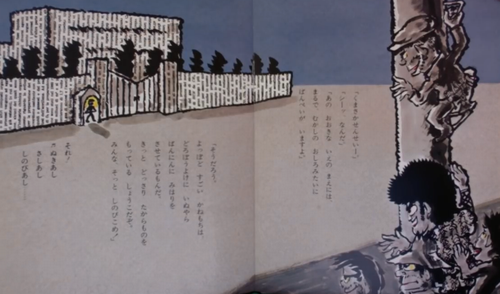 「しまさかせんせいー」
「しーッ なんだ」
「あの おおきな いえの まえには、
まるで、むかしの おしろみたいに
ばんぺいが いますよ」
「そうだろう。
よっぽど すごい かねもちは、
どろぼうよけに いぬやら
ばんにんに みはりを
させているもんだ。
きっと どっさり たからものを
もっている しょうこだぞ。
みんな、そっと しのびこめッ」
それ！
ぬきあし
さしあし
しのびあし…